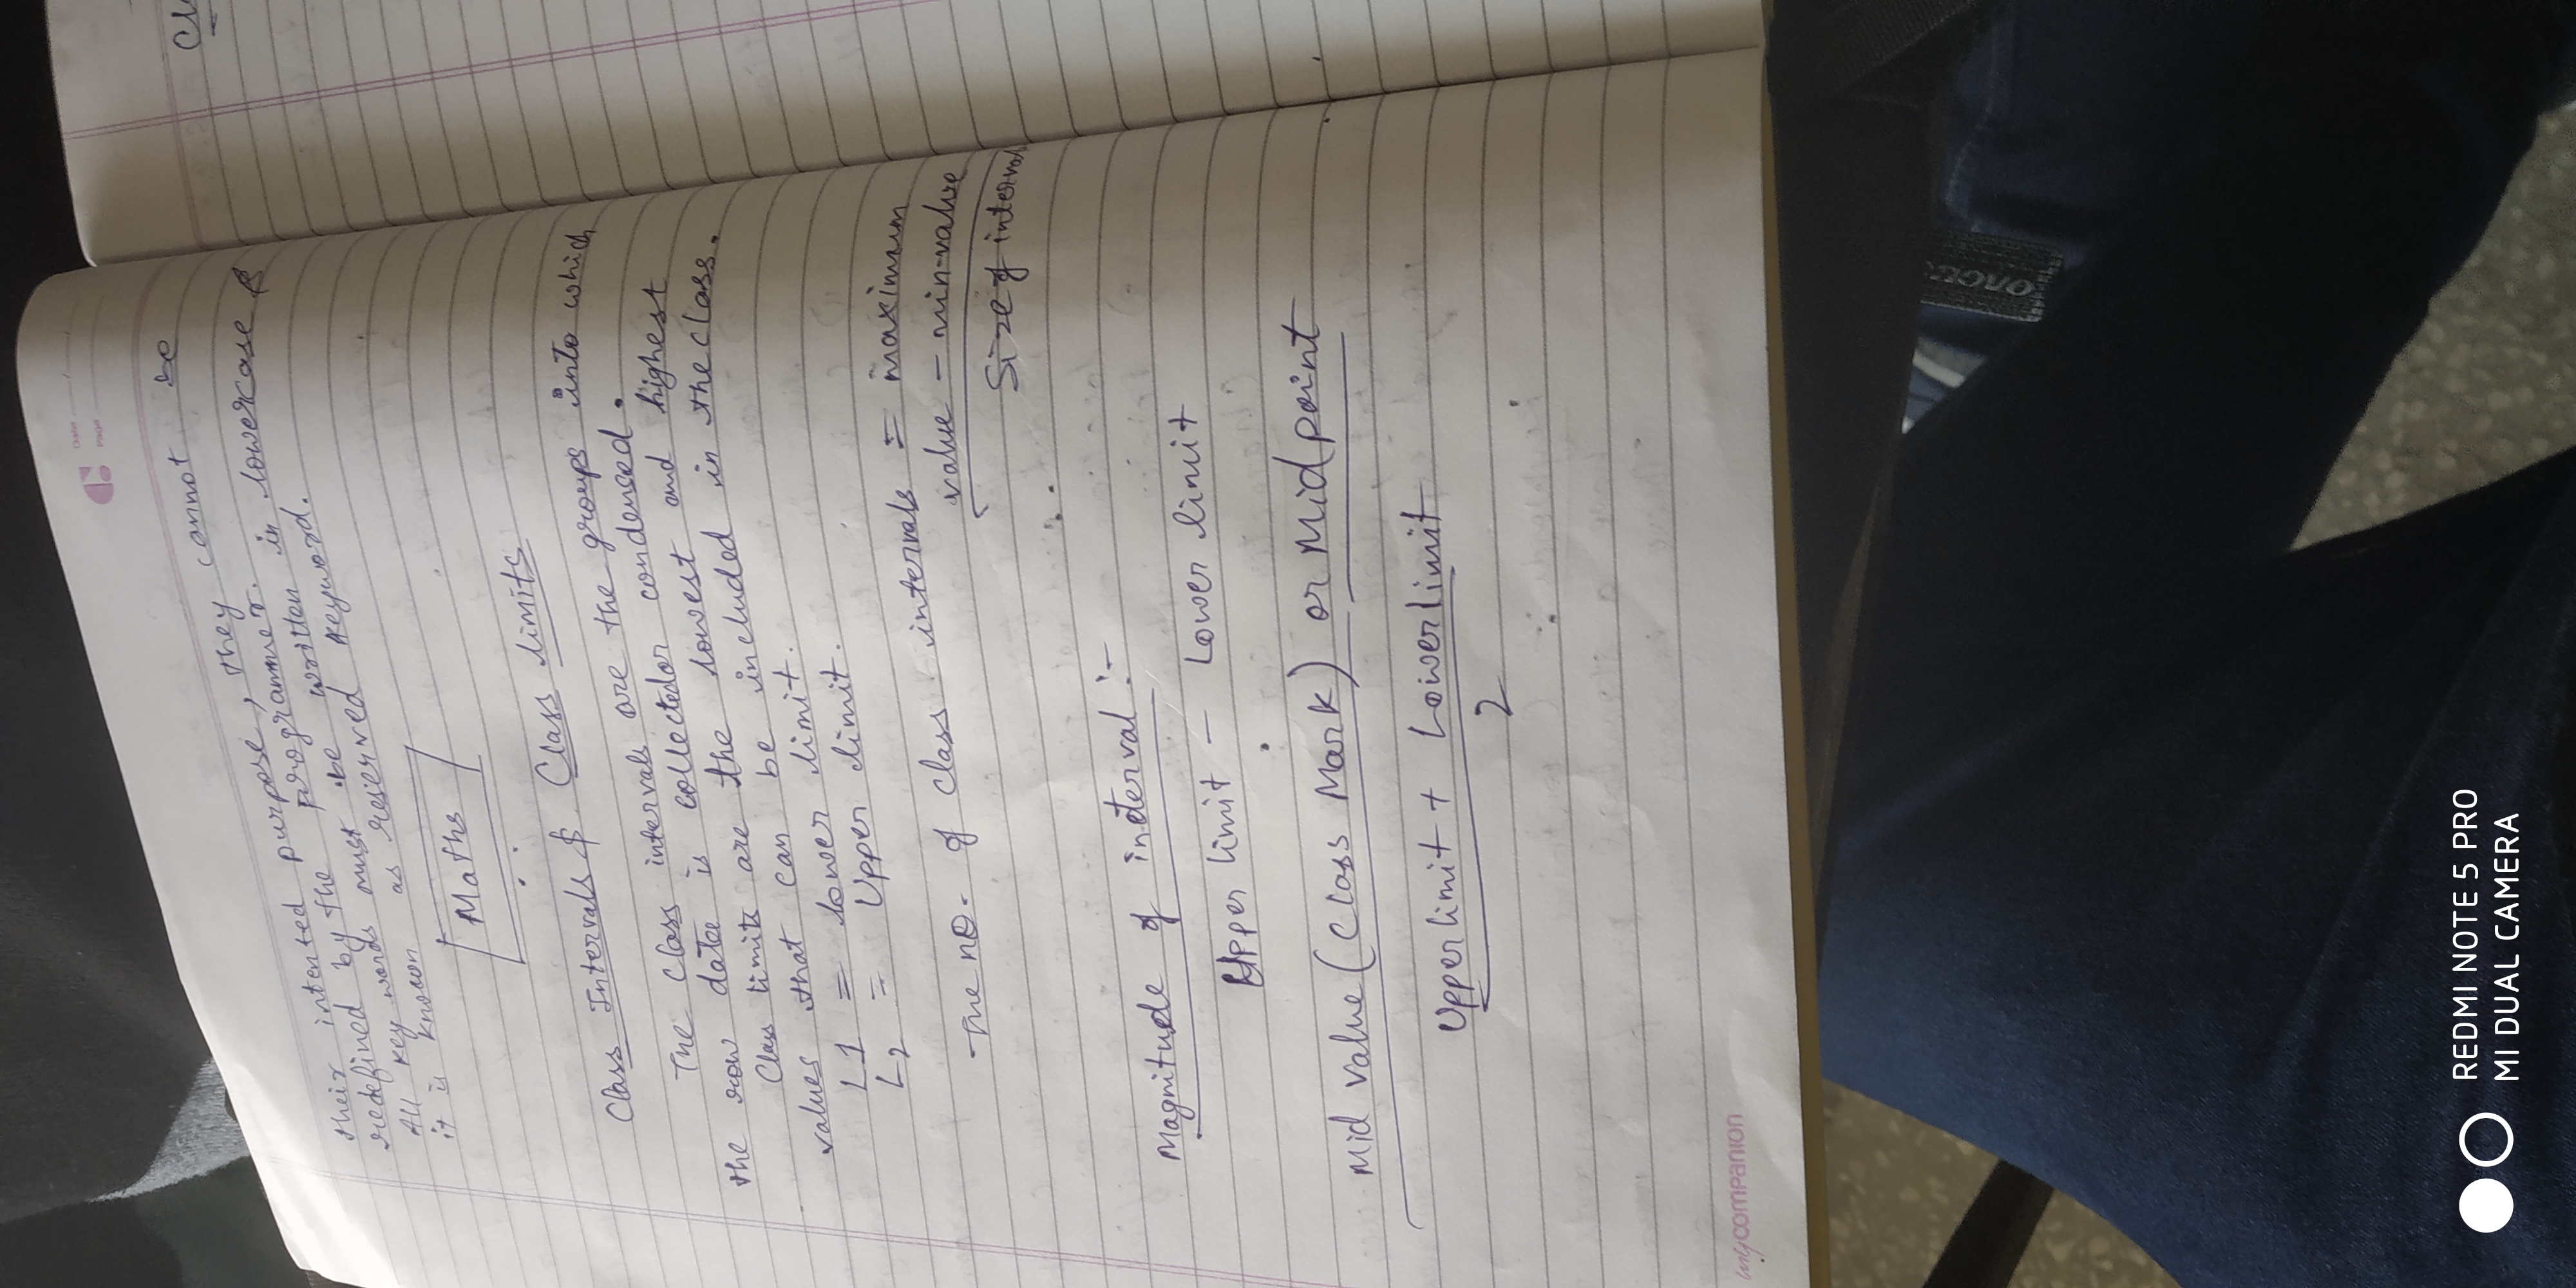 Date
Page
their intented purpose, they cannot be
redefined by the programmer.
All key words must be written in lowercase &
it is known as reserved keyword.
Maths
Class Intervals & Class limits
The class intervals are the groups into which
the row data is collected or condensed.
Class limits are the lowest and highest
values that can be included in the class.
L1 = lower limit.
L2 = Upper limit.
The no. of class intervals = maximum
value - min-value
Size of interval
Magnitude of interval :-
Upper limit - Lower limit
Mid value (Class Mark) or Midpoint
Upper limit + Lower limit
2
my companion
REDMI NOTE 5 PRO
MI DUAL CAMERA